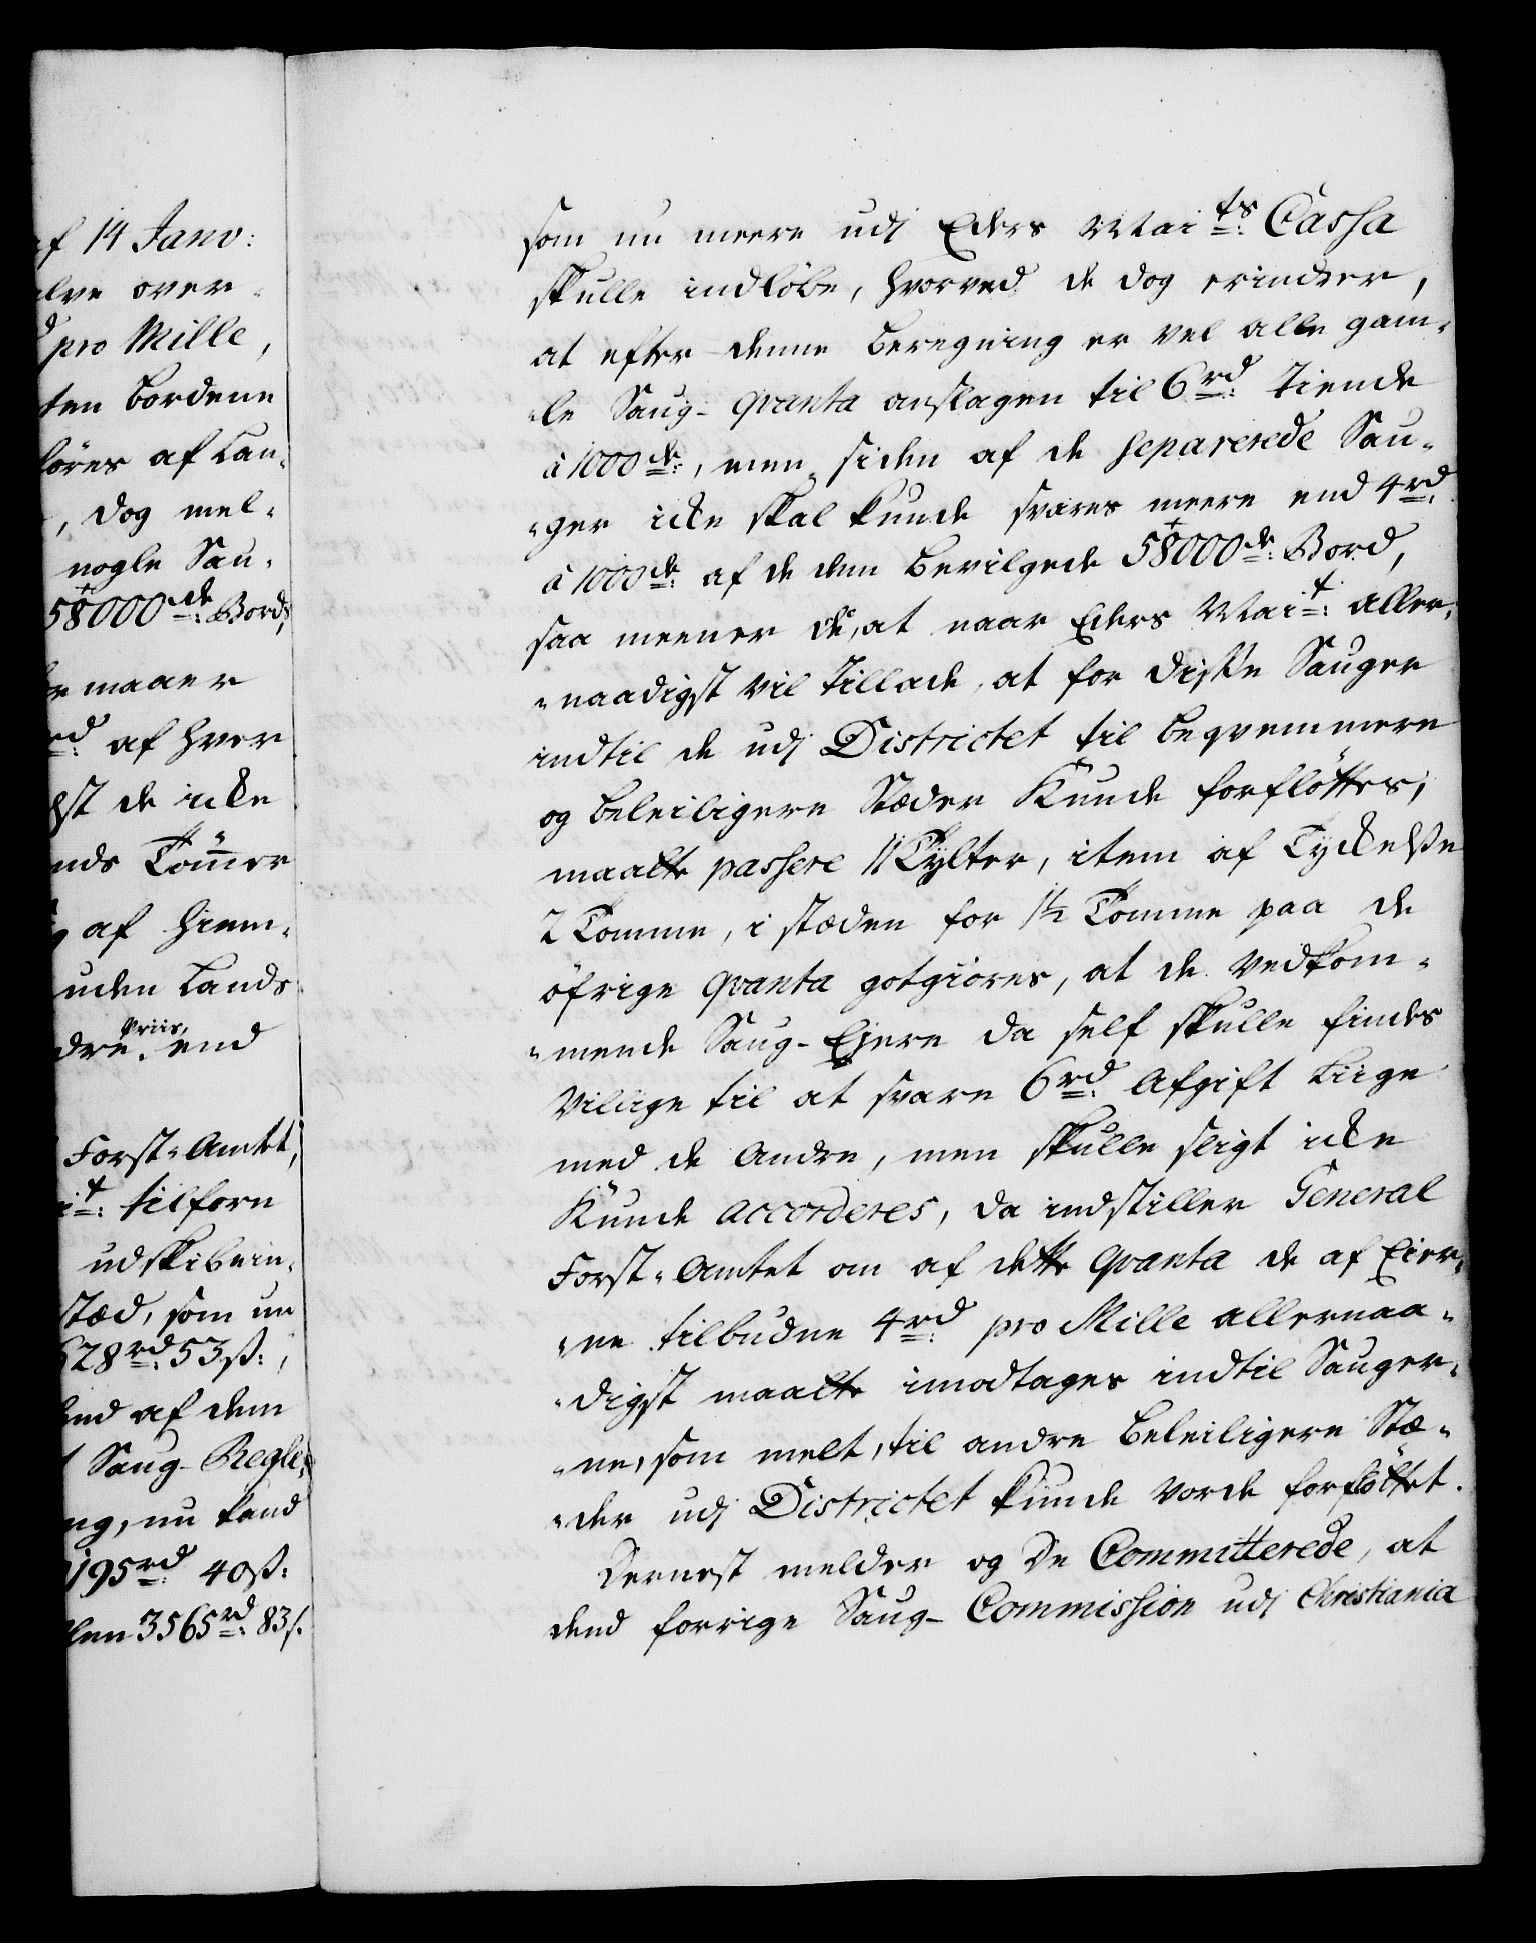 af 14 Janv:
alve over-
pro Mille,
ten bordene
föres af Lan-
, dog mel-
nogle Sau-
58000de: Bord,
maaer
rd: af hver
st de icke
nds Tömer
af hiem-
uden Lands
dre Priis, end
Forst-Amtet,
it: tilforn
udskibnin-
stæd, som nu
628rd: 53ß:,
end af dem
Saug-Regle-
ng, nu kand
195rd: 40ß:
len 3565rd: 83ß.
som nu meere udj Eders Maits: Cassa
skulle indløbe, hvorved de dog erindrer,
at efter denne beregning er vel alle gam-
-le Saug-qvanta anslagen til 6rd: Tiende
à 1000de:, men siden af de separerede Sau-
-ger icke skal kunde svares meere end 4rd:
à 1000de: af de dem bevilgede 58000de: Bord,
saa meener de, at naar Eders Mait: aller-
-naadigst vil tillade, at for disse Sauger
indtil de udj Districtet til beqvemmere
og beleiligere Stæder Kunde forfløttes,
maatte passere 11 Tylter, item af Tyckelse
2 Tomme, i stæden for 1½ Tomme paa de
öfrige qvanta gotgiöres, at de vedkom-
-mende Saug-Ejere da self skulle findes
villige til at svare 6rd: Afgift liige
med de Andre, men skulle sligt icke
Kunde accorderes, da indstiller General
Forst-Amtet om af dette qvanta de af Eier-
-ne tilbudne 4rd: pro Mille allernaa-
-digst maatte imodtages indtil Sauger-
-ne, som melt, til andre beleiligere Stæ-
-der udj Districtet kunde vorde forflöttet.
Dernest melder og De Committerede, at
dend forrige Saug-Commission udj Christiania